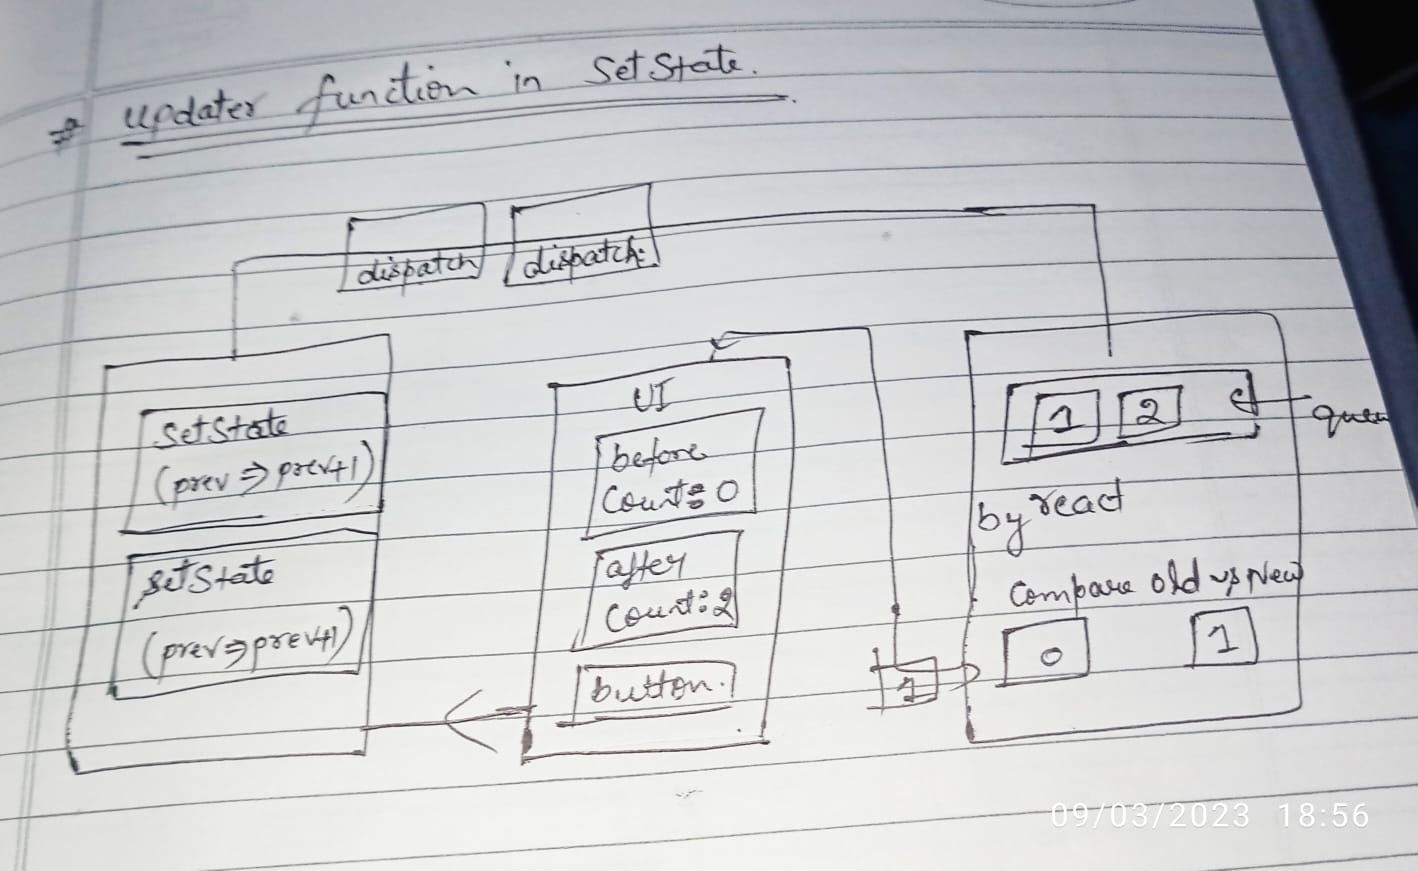 updater function in SetState.
dispatch
dispatch
SetState
(prev => prev+1)
SetState
(prev => prev+1)
UI
before
Count: 0
after
Count: 2
button
1 2
by react
Compare old vs New
0 1
1
09/03/2023 18:56